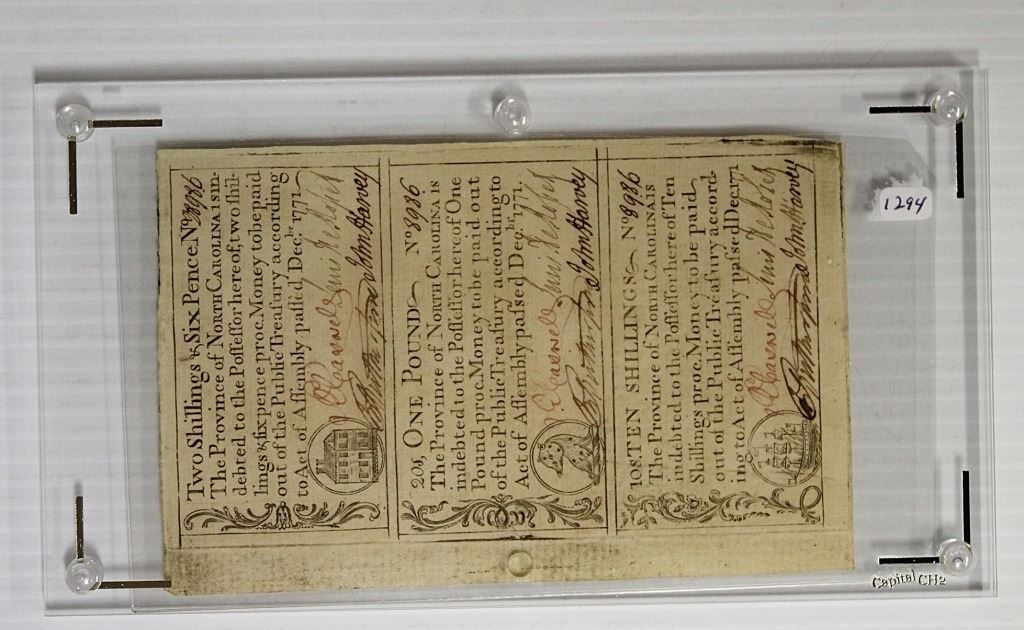 Two Shillings & Six Pence. No 8986
The Province of NORTH CAROLINA is in-
debted to the Poſſeſſor hereof, two ſhil-
lings & ſixpence proc. Money to be paid
out of the Public Treaſury according
to Act of Aſſembly paſſed Decbr. 1771.
Lewis
John Harvey
20s, ONE POUND No 8986
The Province of NORTH CAROLINA is
indebted to the Poſſeſſor hereof One
Pound proc. Money to be paid out
of the Public Treaſury according to
Act of Aſſembly paſſed Decbr. 1771.
Lewis
John Harvey
10s TEN SHILLINGS No 8986
The Province of NORTH CAROLINA is
indebted to the Poſſeſſor hereof Ten
Shillings proc. Money to be paid
out of the Public Treaſury accord-
ing to Act of Aſſembly paſsed Decbr 1771
Lewis
John Harvey
1294
Capital CH2